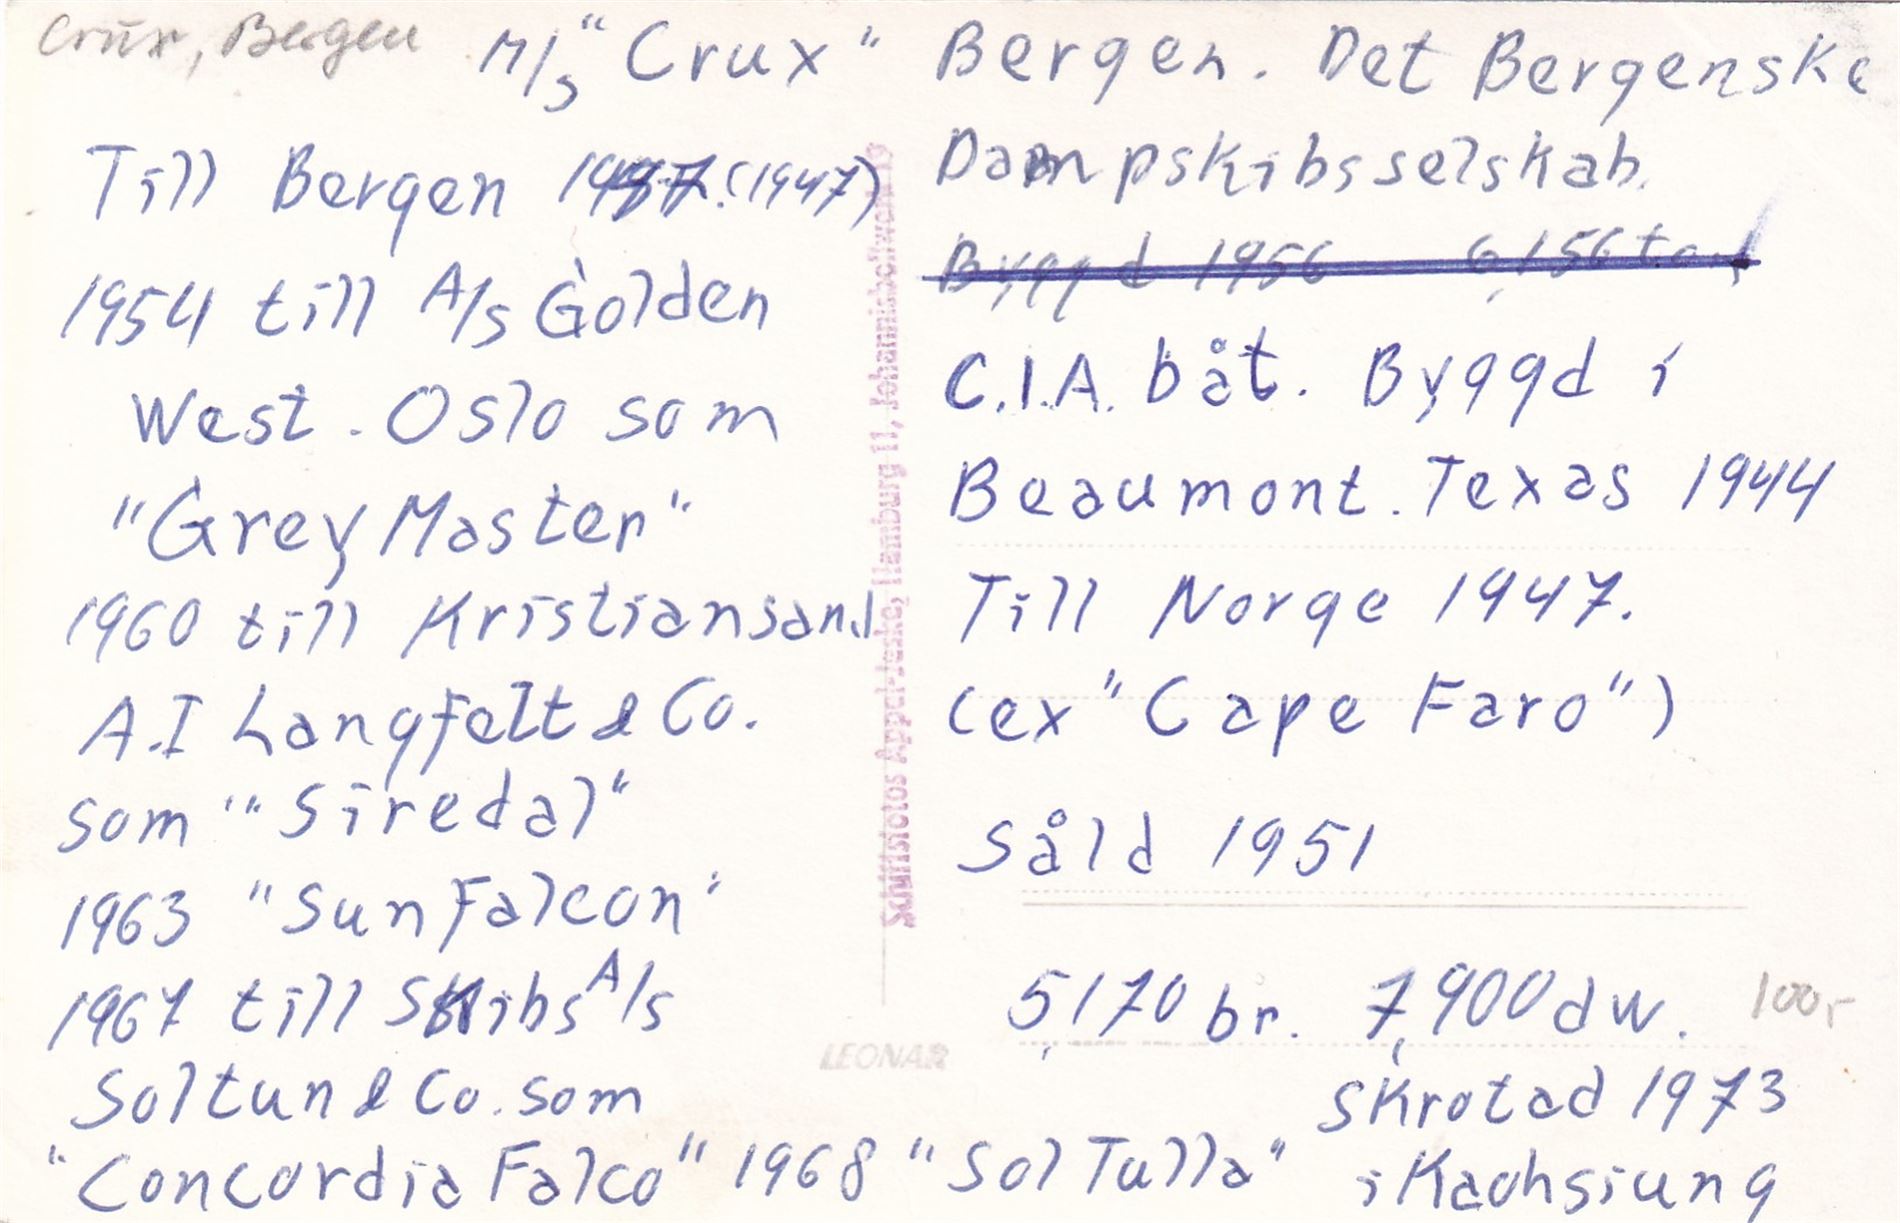 Crux, Bergen
M/S "Crux" Bergen. Det Bergenske
Dampskibsselskab.
Byggd 1956 6,156 ton
C.I.A. båt. Byggd i
Beaumont. Texas 1944
Till Norge 1947.
(ex "Cape Faro")
Såld 1951
5,170 br. 7,900 dw.
100,-
Skrotad 1973
i Kaohsiung
Till Bergen 1947. (1947)
1954 till A/S Golden
West. Oslo som
"Grey Master"
1960 till Kristiansand
A.I Langfelt & Co.
som "Siredal"
1963 "Sun Falcon"
1967 till Skibs A/S
Soltun & Co. som
"Concordia Falco" 1968 "Sol Tulla"
Schiffsfotos Appel-Jeske, Hamburg 11, Johannisbollwerk 19
LEONAR